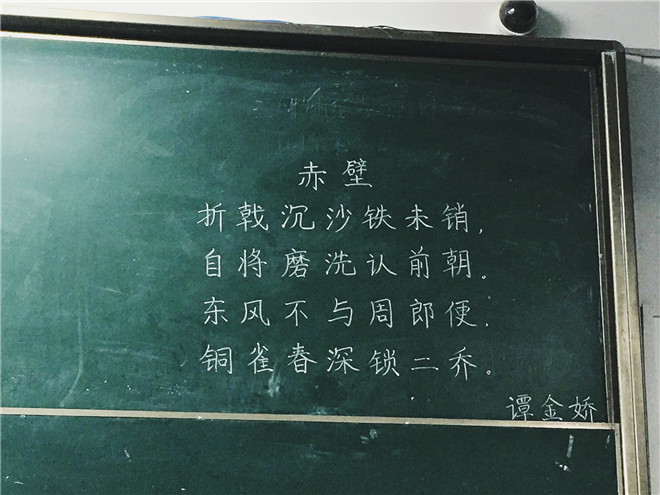 赤壁
折戟沉沙铁未销，
自将磨洗认前朝。
东风不与周郎便，
铜雀春深锁二乔。
谭金娇